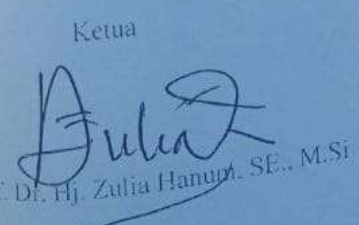 Ketua
Dr. Hj. Zulia Hanum, SE., M.Si